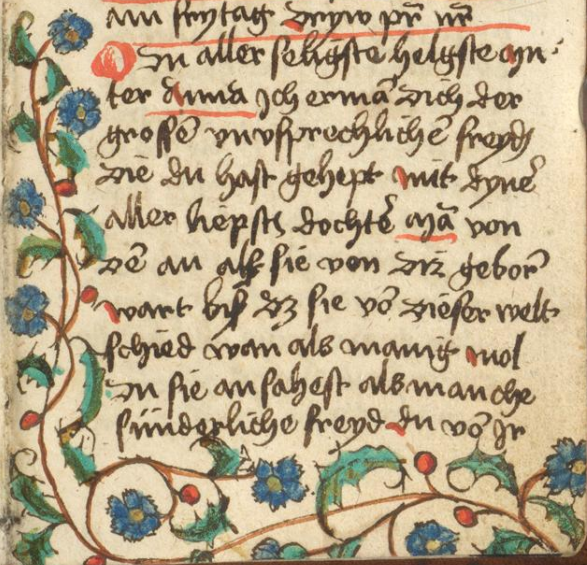 am frytag dryw pr̄ nr̄
O Du aller seligste helgste mn-
ter Anna Jch ermā dich der
grossē vnvsprechlichē freyd
die du hast gehept mit dynē
aller liepstē dochtē mā von
dē an als sie von dir geborn̄
wart biß dz sie vō dieser welt
schied wan als manig mol
du sie ansahest als manche
sünderliche freyd du vō Jr